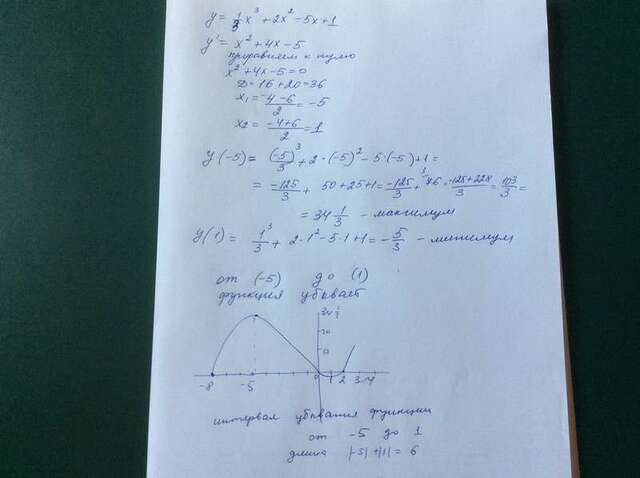 y = 1/3 x³ + 2x² - 5x + 1
y' = x² + 4x - 5
приравняем к нулю
x² + 4x - 5 = 0
D = 16 + 20 = 36
x₁ = (-4-6)/2 = -5
x₂ = (-4+6)/2 = 1
y(-5) = (-5)³/3 + 2·(-5)² - 5·(-5) + 1 =
= -125/3 + 50 + 25 + 1 = -125/3 + 76 = (-125+228)/3 = 103/3 =
= 34 1/3 - максимум
y(1) = 1³/3 + 2·1² - 5·1 + 1 = -5/3 - минимум
от (-5) до (1)
функция убывает
34 1/3
20
10
-8 -5 0 1 2 3 4
интервал убывания функции
от -5 до 1
длина |-5| + |1| = 6